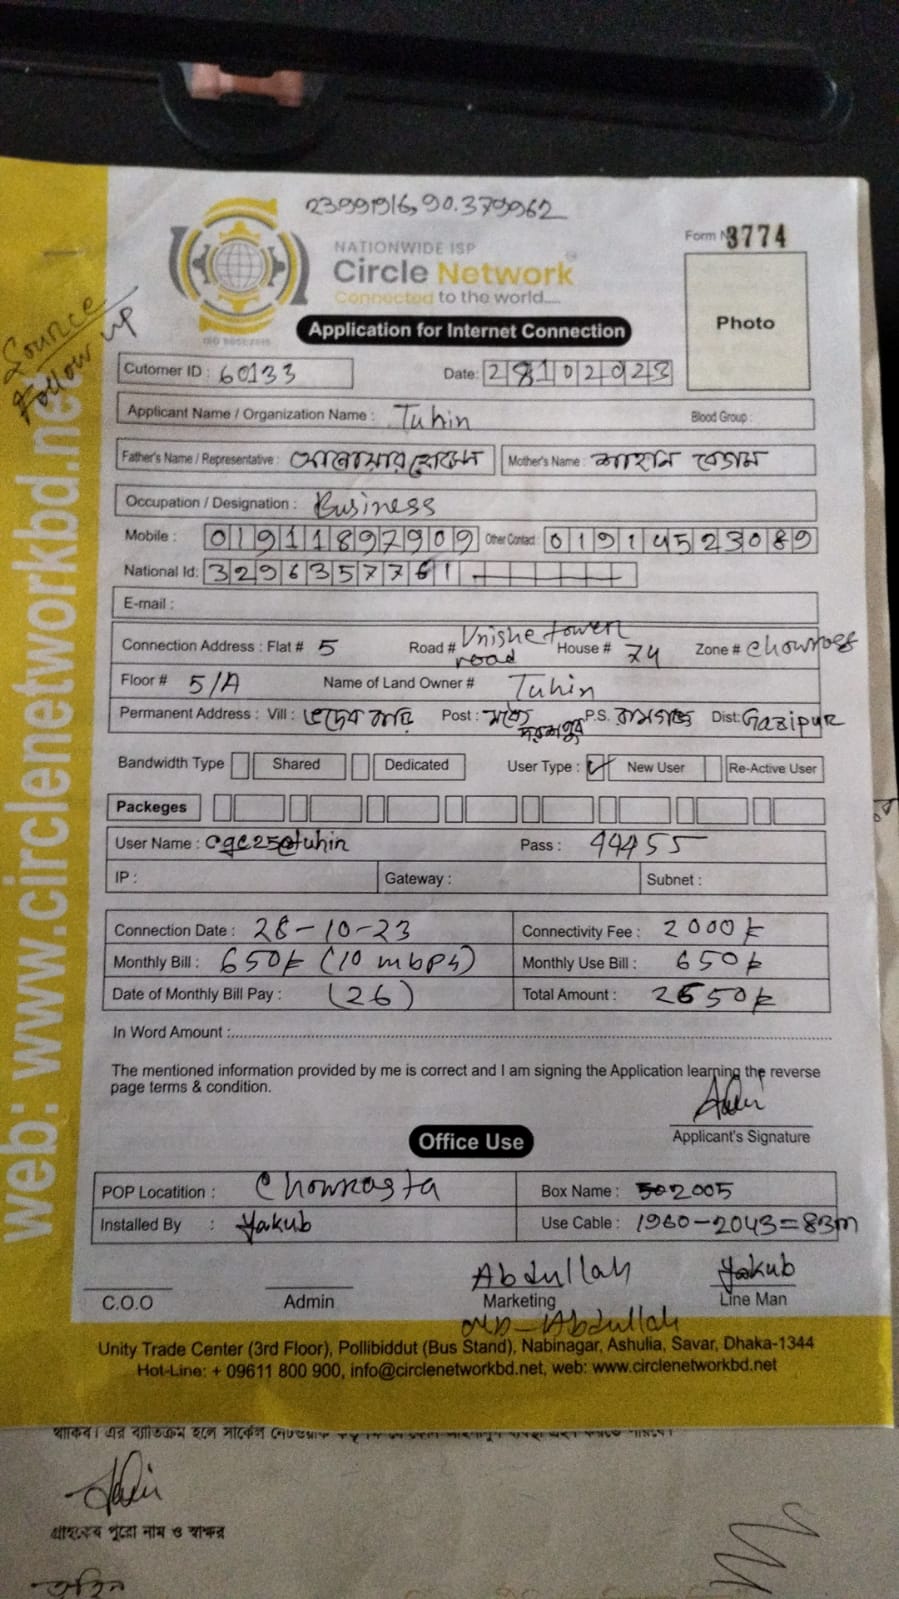 23.991916, 90.379962
NATIONWIDE ISP
Circle Network
Connected to the world....
Form N 3774
Photo
Application for Internet Connection
Source
Follow up
web: www.circlenetworkbd.net
Cutomer ID : 60133 Date: 28102023
Applicant Name / Organization Name : Tuhin Blood Group :
Father's Name / Representative : আনোয়ার হোসেন Mother's Name : জাহান বেগম
Occupation / Designation : Business
Mobile : 01911897909 Other Contact 01914523089
National Id: 3296357761
E-mail :
Connection Address : Flat # 5 Road # tower road House # 74 Zone #
Floor # 5/A Name of Land Owner # Tuhin
Permanent Address : Vill : Post : P.S. রামগঞ্জ Dist: Gazipur
Bandwidth Type Shared Dedicated User Type : ✓ New User Re-Active User
Packeges
User Name : cgc25@tuhin Pass : 44455
IP : Gateway : Subnet :
Connection Date : 28-10-23 Connectivity Fee : 2000৳
Monthly Bill : 650৳ (10 mbps) Monthly Use Bill : 650৳
Date of Monthly Bill Pay : (26) Total Amount : 2650৳
In Word Amount :
The mentioned information provided by me is correct and I am signing the Application learning the reverse
page terms & condition.
Applicant's Signature
Office Use
POP Locatition : Chowrasta Box Name : 2005
Installed By : Yakub Use Cable : 1960-2043=83m
Abdullah Yakub
C.O.O Admin Marketing Line Man
MD-Abdullah
Unity Trade Center (3rd Floor), Pollibiddut (Bus Stand), Nabinagar, Ashulia, Savar, Dhaka-1344
Hot-Line: + 09611 800 900, info@circlenetworkbd.net, web: www.circlenetworkbd.net
গ্রাহকের পুরো নাম ও স্বাক্ষর
তুহিন